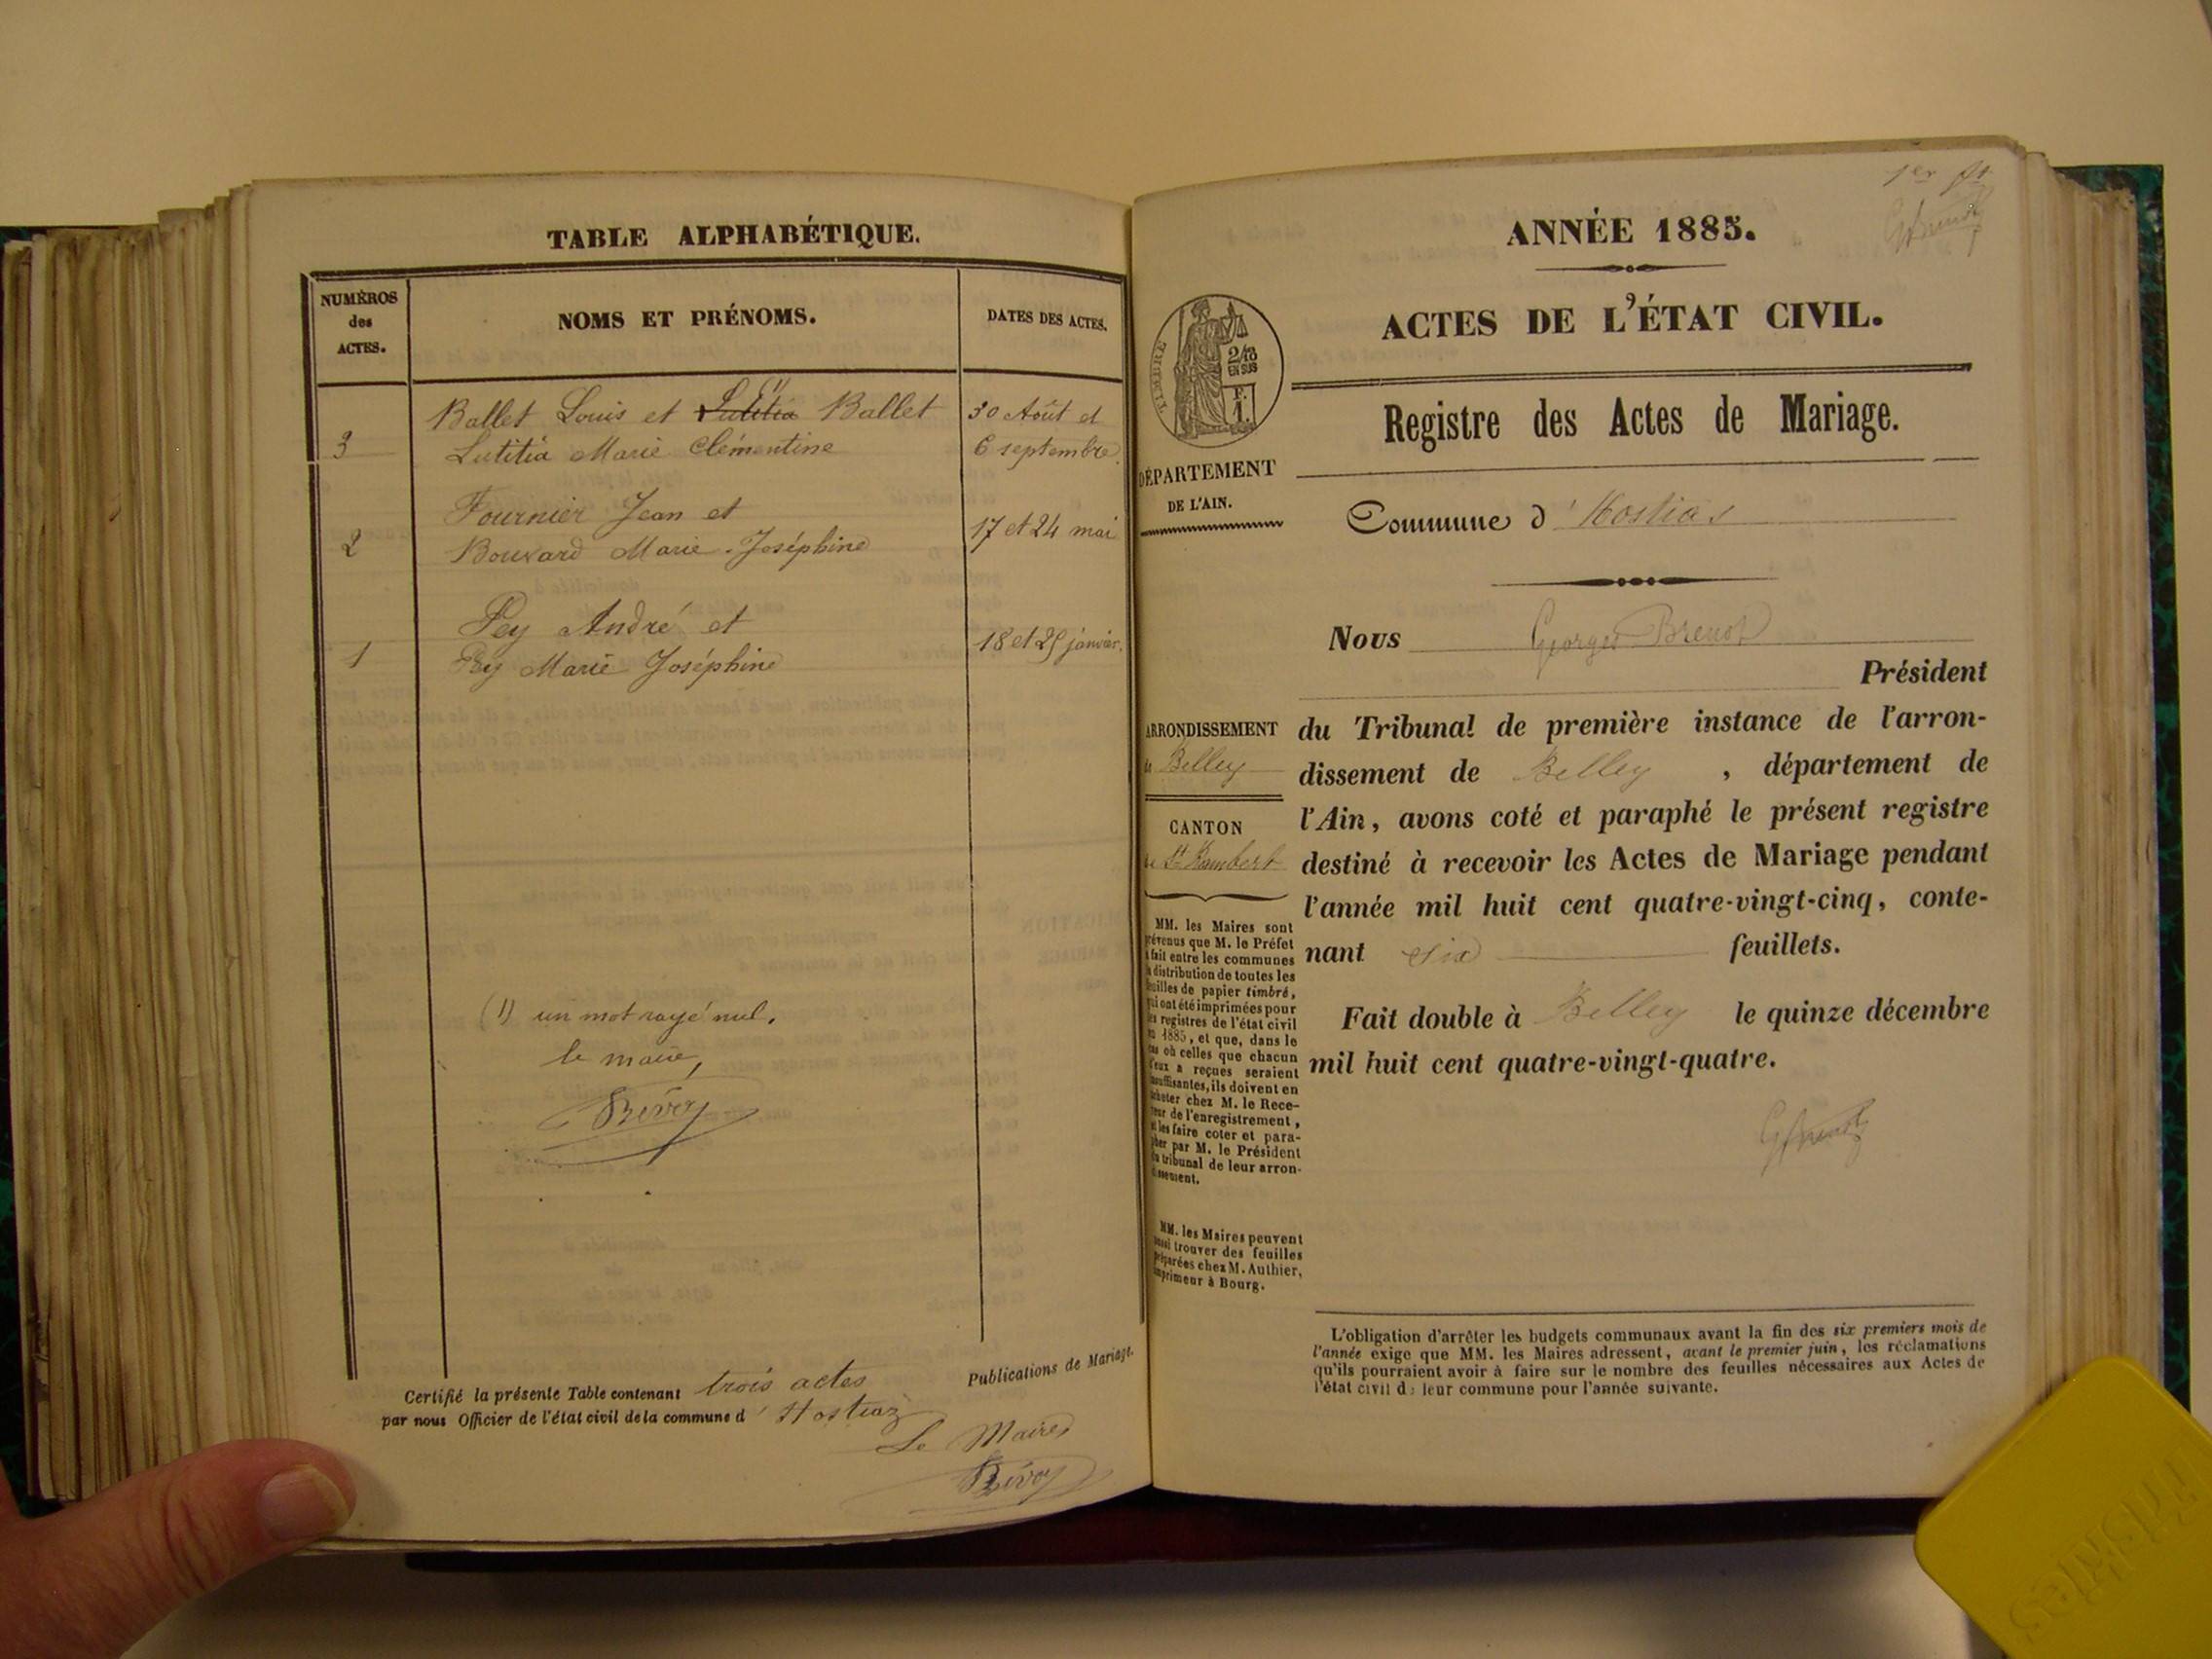 TABLE ALPHABÉTIQUE.
NUMÉROS
des
ACTES.
NOMS ET PRÉNOMS.
DATES DES ACTES.
3
Ballet Louis et Lutitia Ballet
Lutitia Marie Clémentine
30 Août et
6 septembre
2
Fournier Jean et
Bouvard Marie-Joséphine
17 et 24 mai
1
Pey André et
Pey Marie Joséphine
18 et 25 janvier.
(1) un mot rayé nul.
le maire,
Bévoz
Certifié la présente Table contenant trois actes
par nous Officier de l'état civil de la commune d'Hostiaz
Publications de Mariage.
Le Maire
Bévoz
1er ft
ANNÉE 1885.
ACTES DE L'ÉTAT CIVIL.
TIMBRE
2/10
EN SUS
F.
1.
Registre des Actes de Mariage.
DÉPARTEMENT
DE L'AIN.
Commune d'Hostias
Nous Georges Brenot
Président
ARRONDISSEMENT
de Belley
CANTON
de St Rambert
du Tribunal de première instance de l'arron-
dissement de Belley, département de
l'Ain, avons coté et paraphé le présent registre
destiné à recevoir les Actes de Mariage pendant
l'année mil huit cent quatre-vingt-cinq, conte-
nant six feuillets.
Fait double à Belley le quinze décembre
mil huit cent quatre-vingt-quatre.
MM. les Maires sont
prévenus que M. le Préfet
a fait entre les communes
la distribution de toutes les
feuilles de papier timbré,
qui ont été imprimées pour
les registres de l'état civil
en 1885, et que, dans le
cas où celles que chacun
d'eux a reçues seraient
insuffisantes, ils doivent en
acheter chez M. le Rece-
veur de l'enregistrement,
et les faire coter et para-
pher par M. le Président
du tribunal de leur arron-
dissement.
MM. les Maires peuvent
aussi trouver des feuilles
préparées chez M. Authier,
imprimeur à Bourg.
L'obligation d'arrêter les budgets communaux avant la fin des six premiers mois de
l'année exige que MM. les Maires adressent, avant le premier juin, les réclamations
qu'ils pourraient avoir à faire sur le nombre des feuilles nécessaires aux Actes de
l'état civil de leur commune pour l'année suivante.